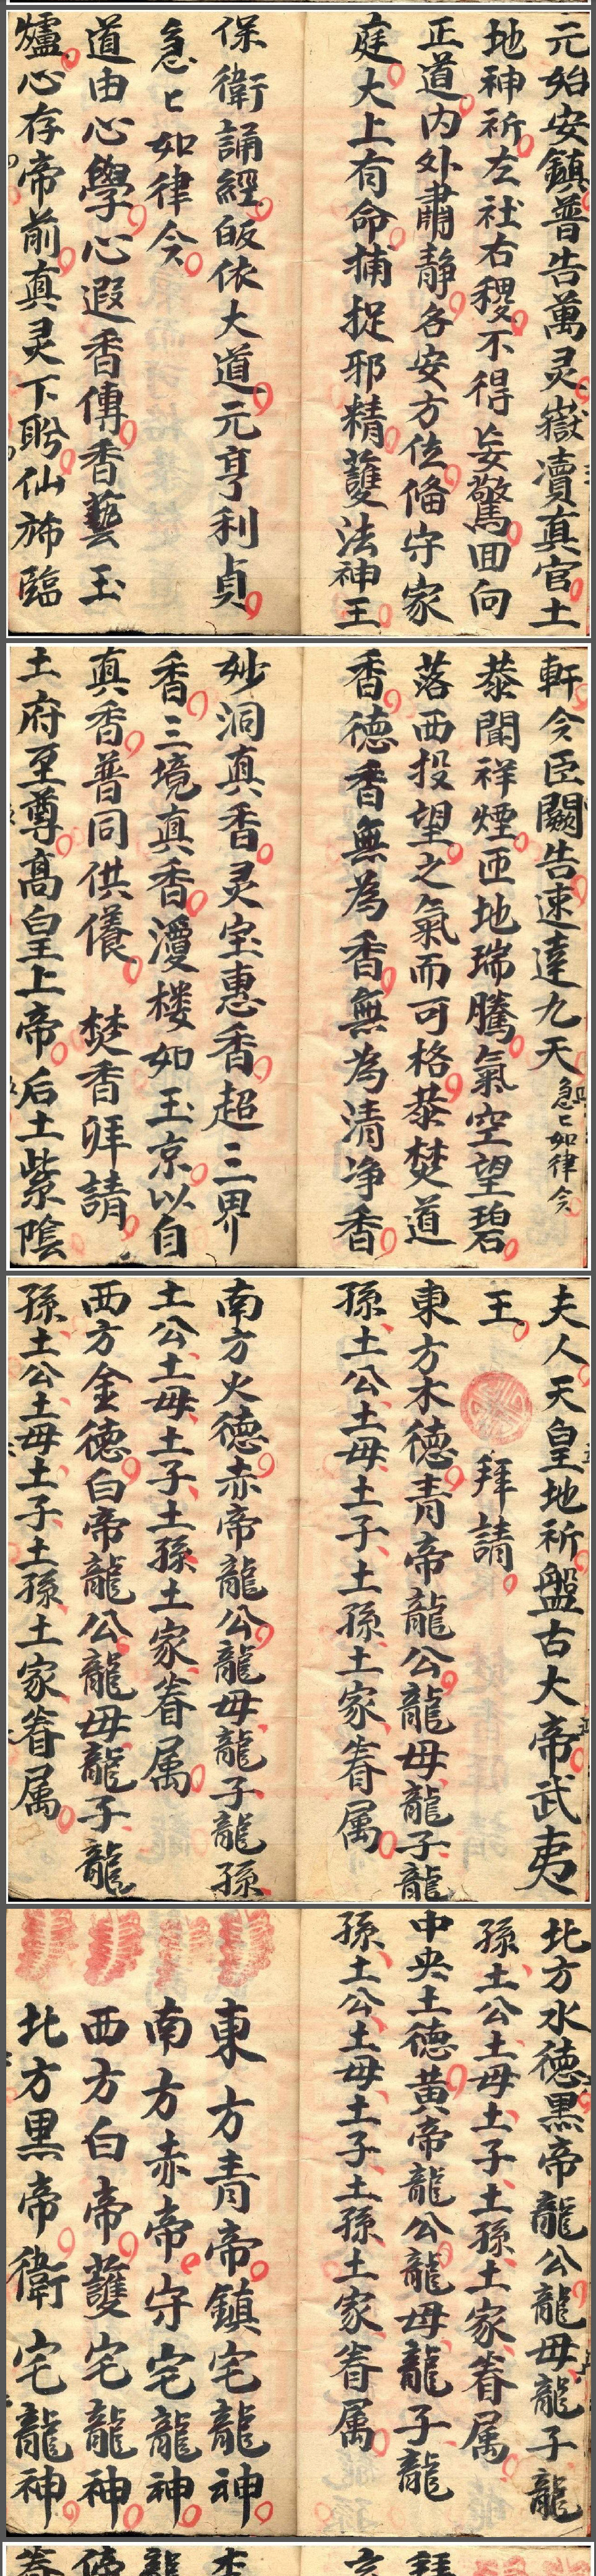 元始安鎮普告萬灵嶽瀆真官土
地神祈左社右稷不得妄驚回向
正道内外肅静各安方位俻守家
庭大上有命捕捉邪精護法神王
保衛誦經皈依大道元亨利貞
急匕如律令
道由心學心遐香傳香藝玉
爐心存帝前真灵下盻仙斾臨
軒今臣闕告速達九天急匕如律令
恭聞祥煙匝地瑞騰氣空望碧
落西投望之氣而可格恭焚道
香德香無為香無為清净香
妙洞真香灵宝惠香超三界
香三境真香瀀楼如玉京以自
真香普同供儀 焚香拜請
土府至尊高皇上帝后土紫陰
夫人天皇地祈盤古大帝武夷
王 拜請
東方木德青帝龍公龍毋龍子龍
孫土公土毋土子土孫土家眷属
南方火德赤帝龍公龍毋龍子龍孫
土公土毋土子土孫土家眷属
西方金德白帝龍公龍毋龍子龍
孫土公土毋土子土孫土家眷属
北方水德黑帝龍公龍毋龍子龍
孫土公土毋土子土孫土家眷属
中央土德黄帝龍公龍毋龍子龍
孫土公土毋土子土孫土家眷属
東方青帝鎮宅龍神
南方赤帝守宅龍神
西方白帝護宅龍神
北方黑帝衛宅龍神